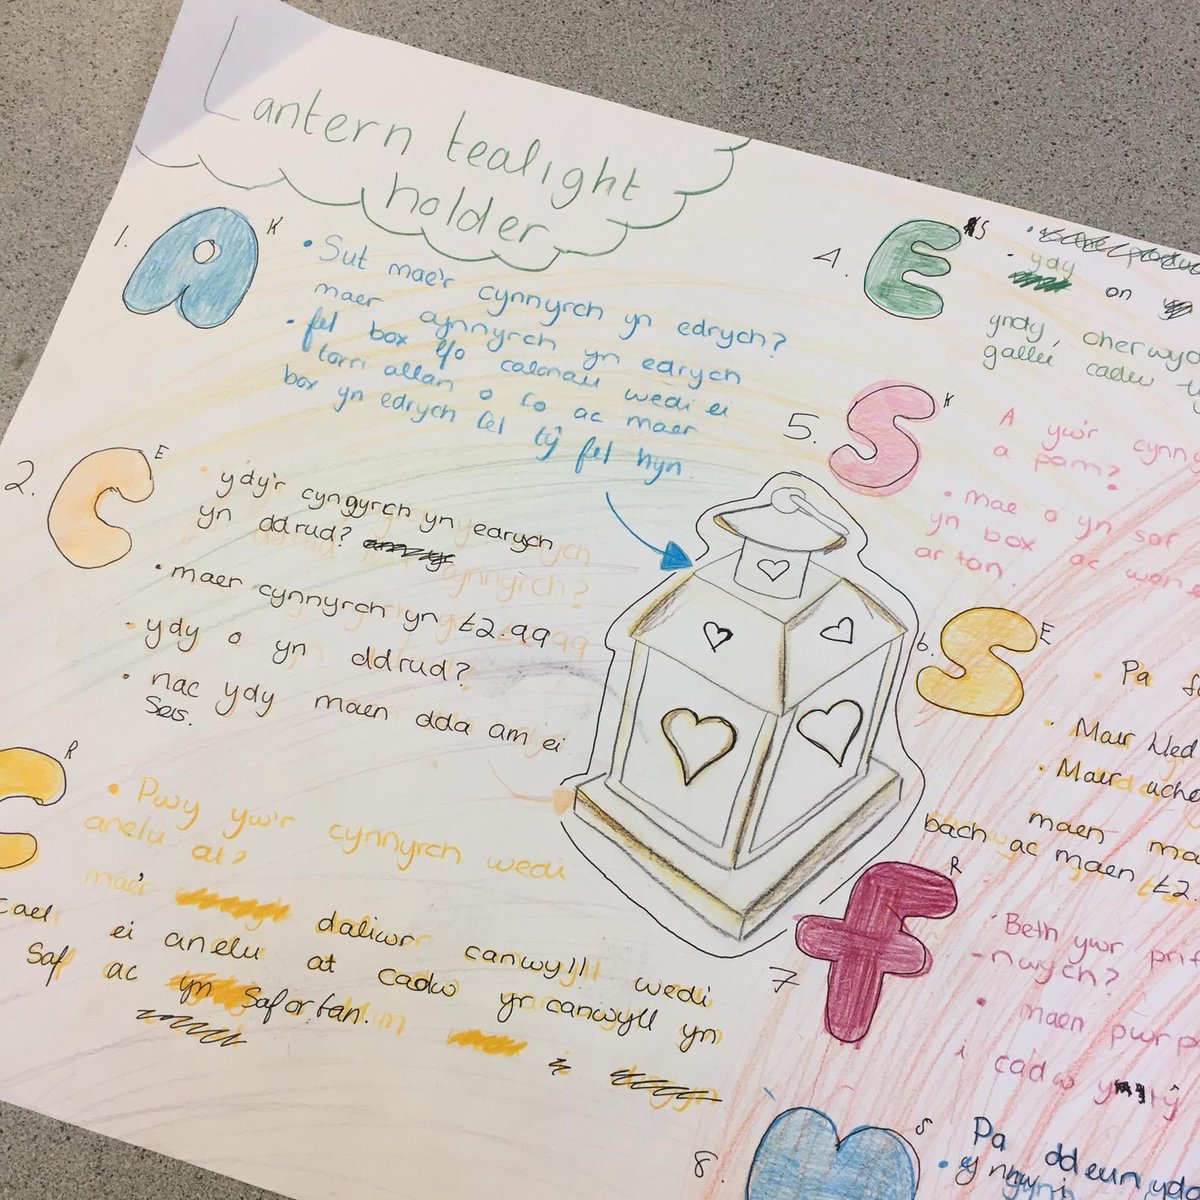 Lantern tealight
holder
1. A K
• Sut mae'r cynnyrch yn edrych?
maer cynnyrch yn edrych
• fel box efo calonau wedi ei
torri allan o fo ac maer
box yn edrych fel tŷ fel hyn.
2. C E
ydy'r cyngyrch yn
yn ddrud?
• maer cynnyrch yn £2.99
• ydy o yn ddrud?
• nac ydy maen dda am ei
seis.
C R
• Pwy yw'r cynnyrch wedi
anelu at?
mae'r daliwr canwyll wedi
cael ei anelu at cadw yr canwyll yn
saf ac yn saf or tan.
4. E S
• ydy on
yndy, oherwyc
galleu cadw
5. S K
A yw'r cynn
a pam?
• mae o yn saf
yn box ac wen
ar tan.
6. S E
• Pa
• Maer lled
• Maer uche
maen ma
bach ac maen £2.
7 F R
• Beth ywr prif
-nwych?
• maen pwrp
i cadw y
8. S
Pa ddeunydd